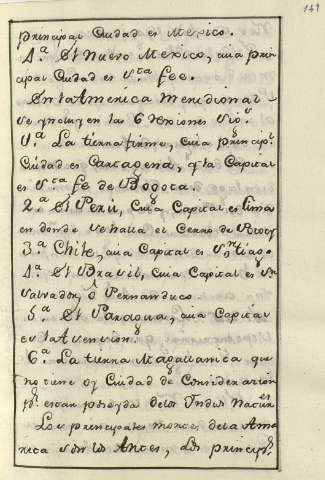 141
principal Ciudad es Mexico.
4.ª El Nuevo Mexico, cuia prin
cipal Ciudad es S.ta fee.
En la America Meridional
se ynclu yen las 6 Rexiones
1.ª La tierra firme, Cuia principˡ.
Ciudad es Cartagena, y la Capital
es S.ta fe de Bogota.
2.ª El Perú, Cuia Capital es Lima
en donde se halla el Cerro de Potocí
3.ª Chile, cuia Capital es S.n tiago.
4.ª El Bracil, Cuia Capital es Sn
Salvador, ó Pernambuco.
5.ª El Paraguai, cuia Capital
es la Asencion.
6.ª La tierra Magallanica que
no tiene oy Ciudad de Consideracion
pr. estar poseyda de los Indis Natures
Los principales montes de la Ame
rica son los Andes, Los princips.